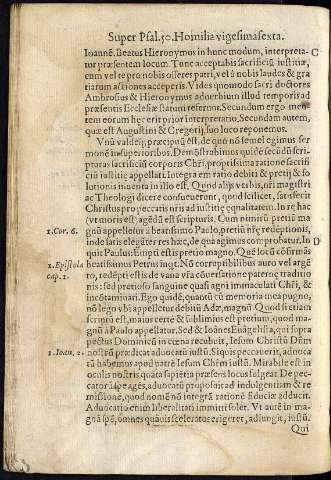 Super Psal. 50. Homilia vigesimasexta.
Ioannē. Beatus Hieronymus in hunc modum, interpreta- C
tur præsentem locum. Tunc acceptabis sacrificiū iustitiæ,
cum vel te pro nobis offeres patri, vel à nobis laudes & gra
tiarum actiones acceperis. Vides quomodo sacri doctores
Ambrosius & Hieronymus ad verbum illud temporis ad
præsentis Ecclesiæ statum referunt. Secundum ergo men-
tem eorum hęc erit prior interpretatio, Secundam autem,
quæ est Augustini & Gregorij, suo loco reponemus.
Vnū valde, præcipuū est, de quo nō semel egimus ser
monē in superioribus. Demōstrabimus quidē secūdū scrip-
turas sacrificiū corporis Chři, propriissima ratione sacrifi
ciū iustitię appellari. Integra em̄ ratio debiti & pretij & so
lutionis inuenta in illo est. Quod alijs verbis, nr̄i magistri
ac Theologi dicere consueuerunt, quod scilicet, satisfecit
Christus pro peccatis nr̄is ad iustitię equalitatem. In re hac
/vt moris est/ agēdū est scripturis. Cum nimirū pretiū ma-
1. Cor. 6. gnū appelletur à beatissimo Paulo, pretiū nr̄ę redēptionis,
inde satis elegāter res hæc, de qua agimus comprobatur. In D
quit Paulus: Empti estis pretio magno. Quē locū cōfirmās
1. Epistola beatissimus Petrus inqt. Nō corruptibilibus auro vel argē
cap. 1. to, redēpti estis de vana vr̄a cōuersatione paternę traditio
nis: sed pretioso sanguine quasi agni immaculati Chři, &
incōtaminati. Ego quidē, quantū cū memoria mea pugno,
nō lego vbi appelletur debitū Adæ, magnū. Quod si etiam
scriptū est, maius certe & sublimius est pretium, quod ma-
gnū à Paulo appellatur. Sed & Ioannes Euāgelista, qui supra
pectus Dominicū in cœna recubuit, Iesum Christū Dn̄m
1. Ioan. 2. nostrū prædicat aduocatū iustū. Siquis peccauerit, aduoca
tū habemus apud patrē Iesum Chr̄m iustū. Mirabile est in
oculis nostris quāta sapiētia præsens locus fulgeat. De pec-
catore agēs, aduocatū proposuit ad indulgentiam & re
missionē, quod nomē nō integrā rationē fiduciæ adducit.
Aduocatio enim liberalitati inniti solet. Vt autē in ma-
gnā spē, omnes quāuis sceleratos erigeret, adiungit, iustū.
Qui